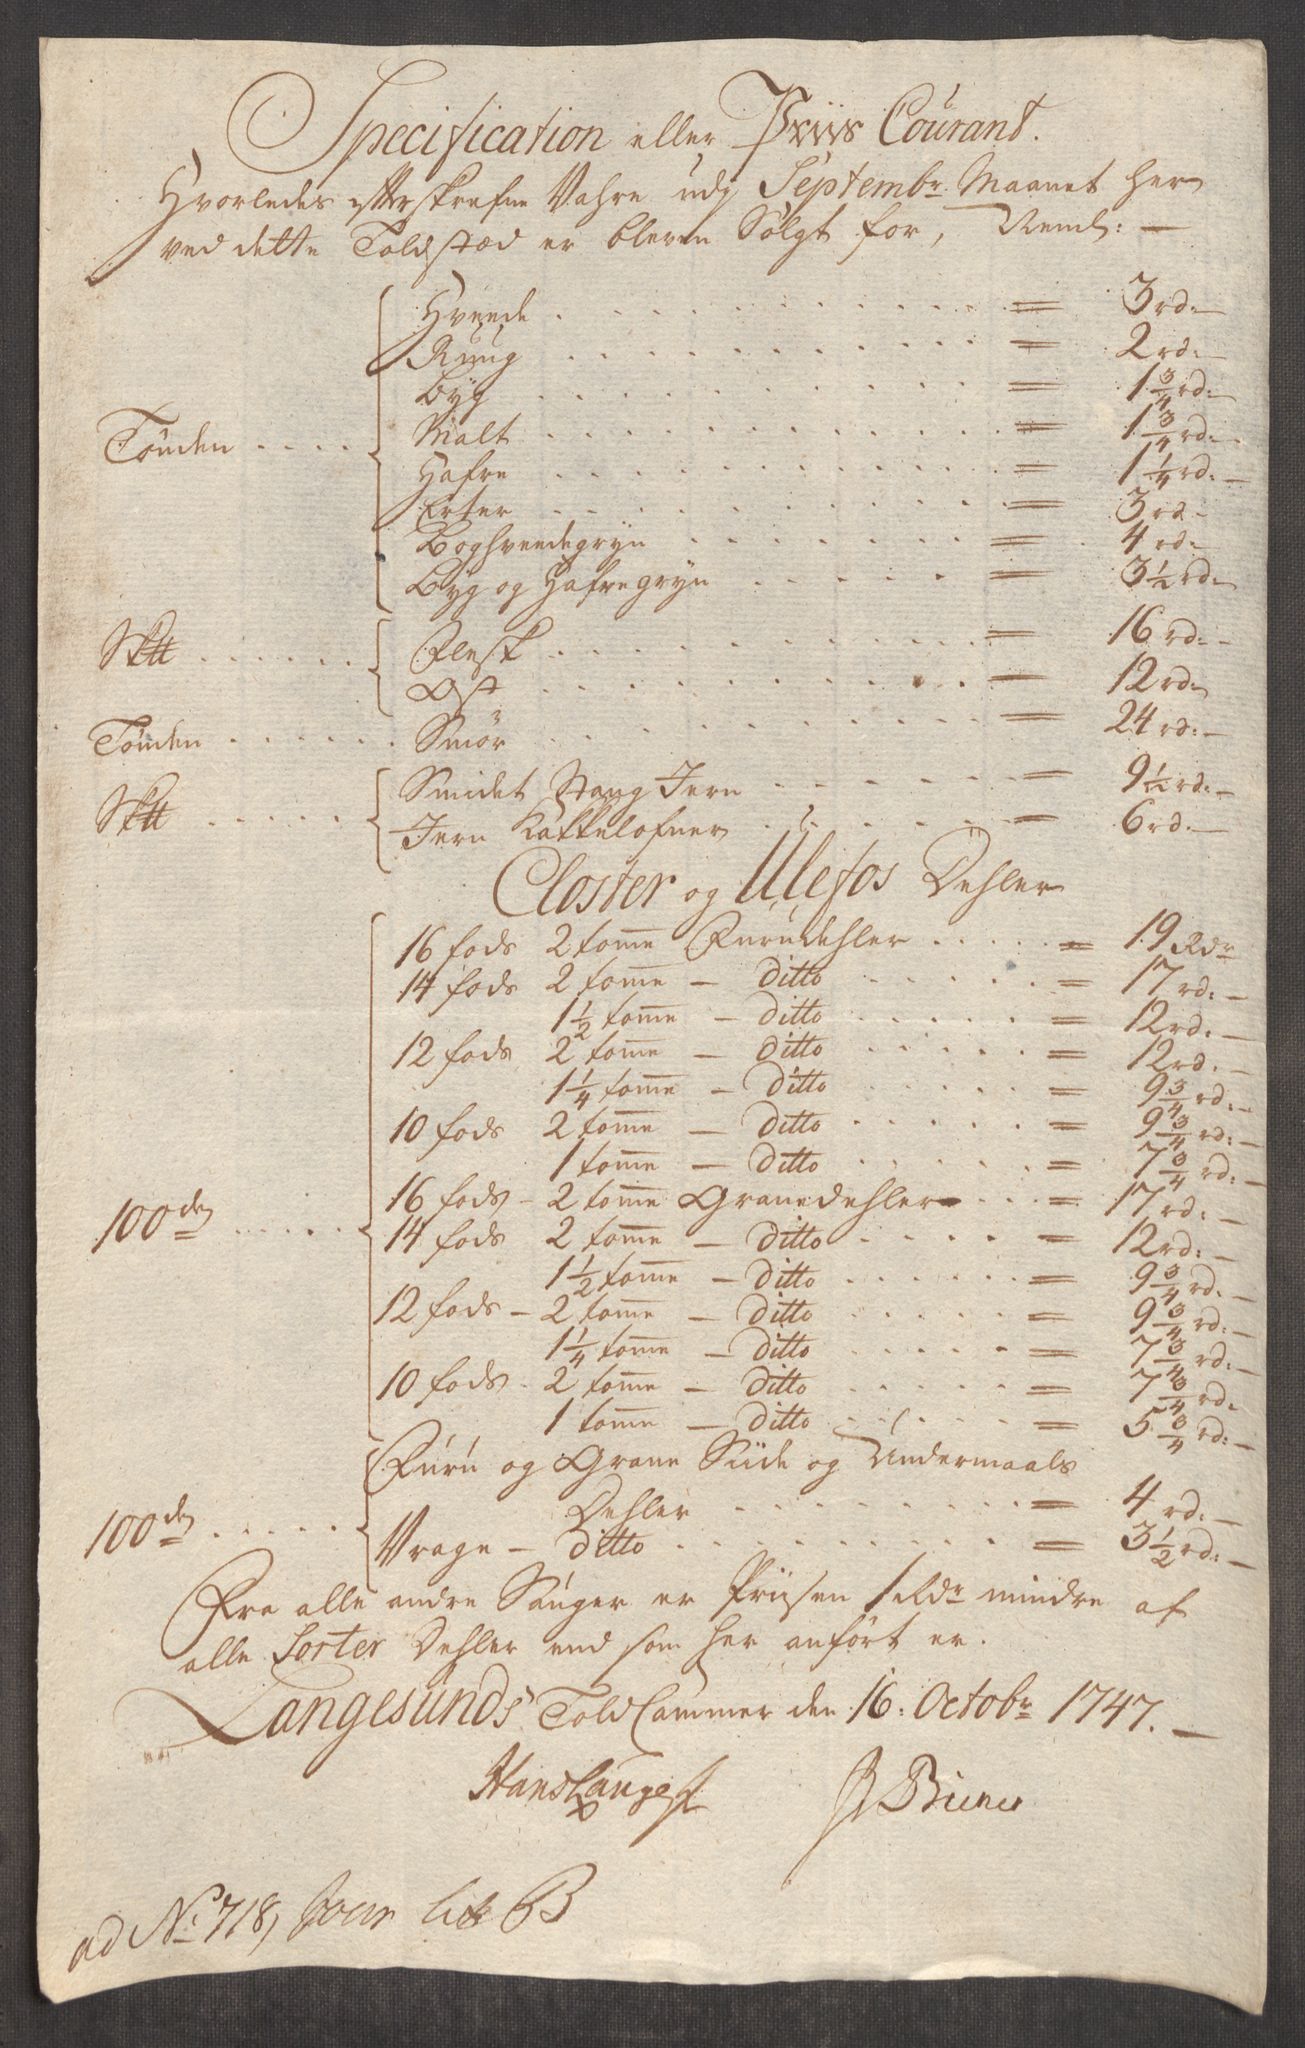 Specification eller Priis Courant.
Hvorledes efterskrefne Vahre udj Septembr. Maanet her
ved dette Toldstæd er bleven Solgt for, Neml: —
Hveede . . . . . = 3 rd: —
Ruug . . . . . = 2 rd: —
Byg . . . . . = 1 3/4 rd: —
Tønden . . . . Malt . . . . . = 1 3/4 rd: —
Hafre . . . . . = 1 1/4 rd: —
Erter . . . . . = 3 rd —
Boghveedegryn . . . . . = 4 rd: —
Byg og Hafregryn . . . . . = 3 1/2 rd: —
Sk℔ . . . . . Flesk . . . . . = 16 rd: —
Ost . . . . . = 12 rd: —
Tønden . . . . . Smör . . . . . = 24 rd: —
Smidet Stang Jern . . . . . = 9 1/2 rd: —
Sk℔ . . . . . Jern Kakkelofner . . . . . = 6 rd: —
Closter og Ulefos Dehler
16 fods 2 tomme Furudehler . . . . . = 19 Rdr
14 fods 2 tomme — ditto . . . . . = 17 rd: —
1 1/2 tomme — ditto . . . . . = 12 rd: —
12 fods 2 tomme — ditto . . . . . = 12 rd: —
1 1/4 tomme — ditto . . . . . = 9 3/4 rd: —
10 fods 2 tomme — ditto . . . . . = 9 3/4 rd: —
1 tomme — ditto . . . . . = 7 3/4 rd: —
16 fods - 2 tomme Granedehler . . . = 17 rd: —
100den . . . . . 14 fods 2 tomme — ditto . . . . . = 12 rd: —
1 1/2 tomme — ditto . . . . . = 9 3/4 rd: —
12 fods - 2 tomme — ditto . . . . . = 9 3/4 rd: —
1 1/4 tomme — ditto . . . . . = 7 3/4 rd: —
10 fods - 2 tomme — ditto . . . . . = 7 3/4 rd:
1 tomme — ditto . . . . . = 5 3/4 rd: —
Furu og Grane Siide og Undermaals
100den . . . . . Dehler . . . . . = 4 rd: —
Vrage — ditto . . . . . = 3 1/2 rd: —
Fra alle andre Sauger er Priisen 1 Rdr mindre af
alle Sorter Dehler end som her anført er.
Langesunds Told Cammer den 16. Octobr 1747. —
Hans Lange
ad No. 718, Lit B